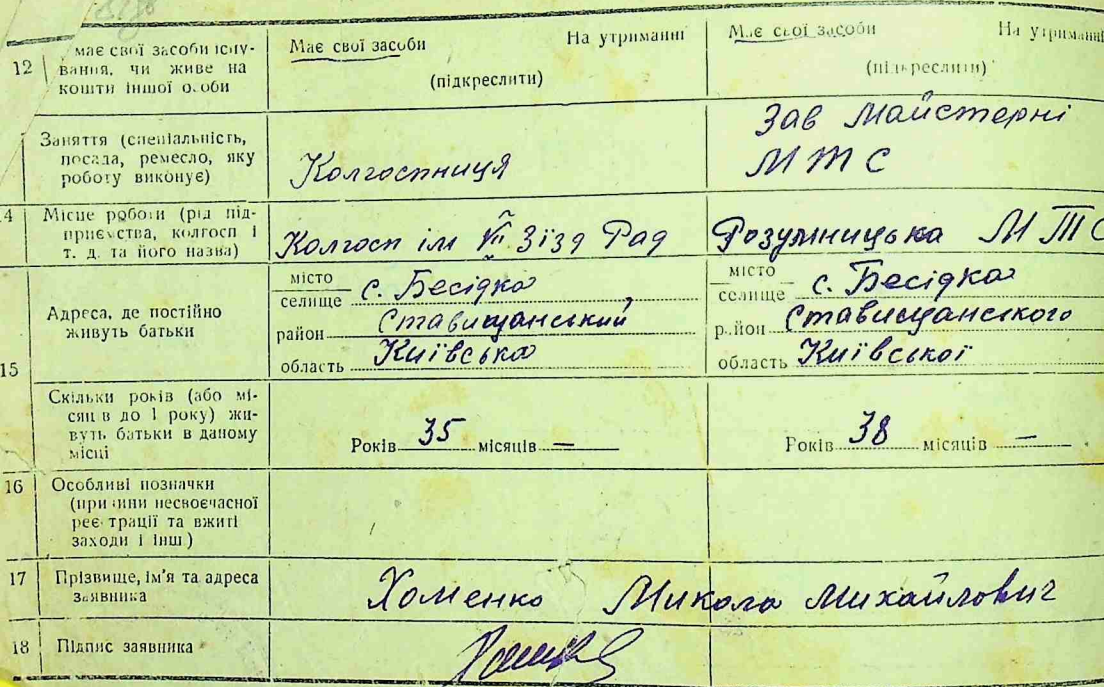 12 має свої засоби існу-
вання, чи живе на
кошти іншої особи
Має свої засоби На утриманні
(підкреслити)
Має свої засоби На утриманні
(підкреслити)
Заняття (спеціальність,
посада, ремесло, яку
роботу виконує)
Колгоспниця
Зав Майстерні
МТС
4 Місце роботи (рід під-
приємства, колгосп і
т. д. та його назва)
Колгосп ім VII Зізд Рад
Розумницька МТС
15 Адреса, де постійно
живуть батьки
місто
селище с. Бесідка
район Ставищанский
область Київська
місто
селище с. Бесідка
район Ставищанского
область Київскої
Скільки років (або мі-
сяців до 1 року) жи-
вуть батьки в даному
місці
Років 35 місяців —
Років 38 місяців —
16 Особливі позначки
(причини несвоєчасної
реєстрації та вжиті
заходи і інш)
17 Прізвище, ім'я та адреса
заявника
Хоменко Микола Михайлович
18 Підпис заявника